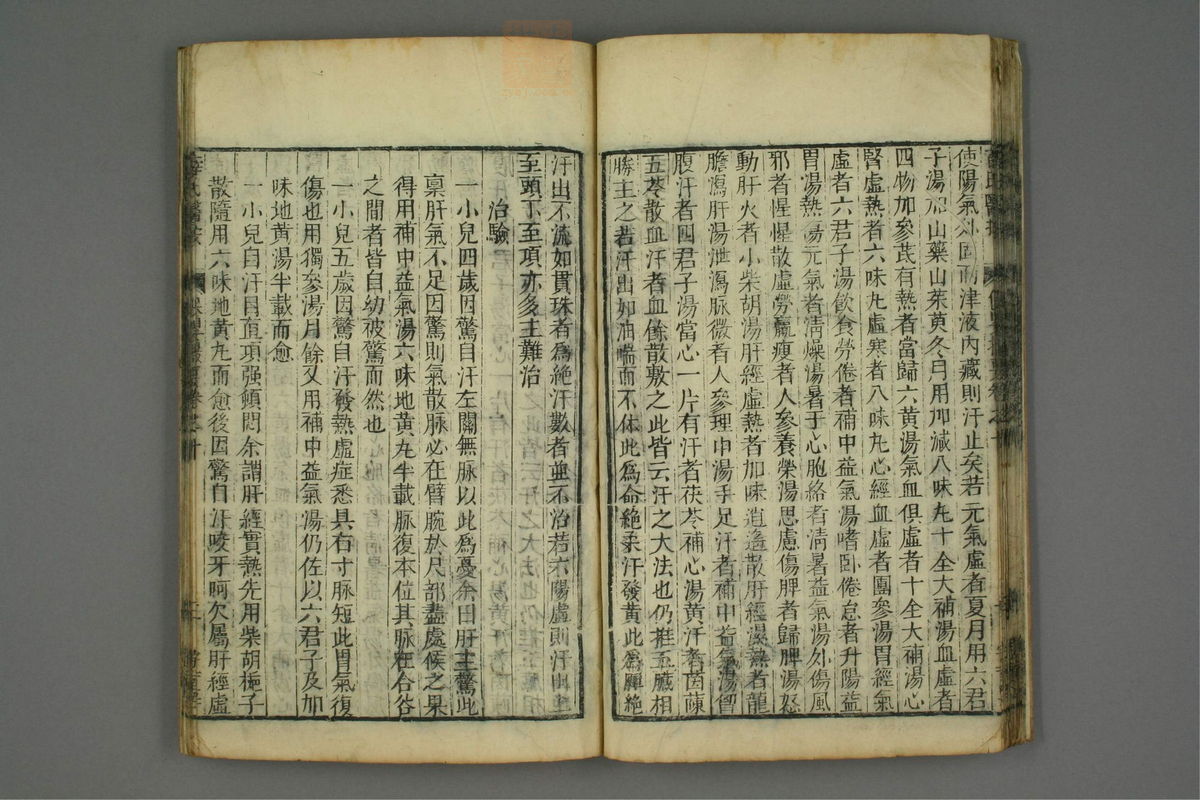 使陽氣外固而津液內藏則汗止矣若元氣虛者夏月用六君
子湯加山藥山茱萸冬月用加減八味丸十全大補湯血虛者
四物加參芪有熱者當歸六黃湯氣血俱虛者十全大補湯心
腎虛熱者六味丸虛寒者八味丸心經血虛者團參湯胃經氣
虛者六君子湯飲食勞倦者補中益氣湯嗜臥倦怠者升陽益
胃湯熱傷元氣者清燥湯暑干心胞絡者清暑益氣湯外傷風
邪者惺惺散虛勞羸瘦者人參養榮湯思慮傷脾者歸脾湯怒
動肝火者小柴胡湯肝經虛熱者加味逍遙散肝經濕熱者龍
膽瀉肝湯泄瀉脈微者人參理中湯手足汗者補中益氣湯
腹汗者四君子湯當心一片有汗者茯苓補心湯黃汗者茵蔯
五苓散血汗者血餘散敷之此皆云汗之大法也仍推五臟相
勝主之若汗出如油喘而不休此為命絕柔汗發黃此為脾絕
汗出不流如貫珠者為絕汗數者並不治若六陽虛則汗出上
至頭下至項亦多主難治
治驗
一小兒四歲因驚自汗左關無脉以此為憂余曰肝主驚此
稟肝氣不足因驚則氣散脉必在臂腕於尺部盡處候之果
得用補中益氣湯六味地黃丸半載脉復本位其脉在合谷
之間者皆自幼被驚而然也
一小兒五歲因驚自汗發熱虛症悉具右寸脉短此胃氣復
傷也用獨參湯月餘又用補中益氣湯仍佐以六君子及加
味地黃湯半載而愈
一小兒自汗目直項强頓悶余謂肝經實熱先用柴胡梔子
散隨用六味地黃丸而愈後因驚自汗咬牙呵欠屬肝經虛
薛氏醫按